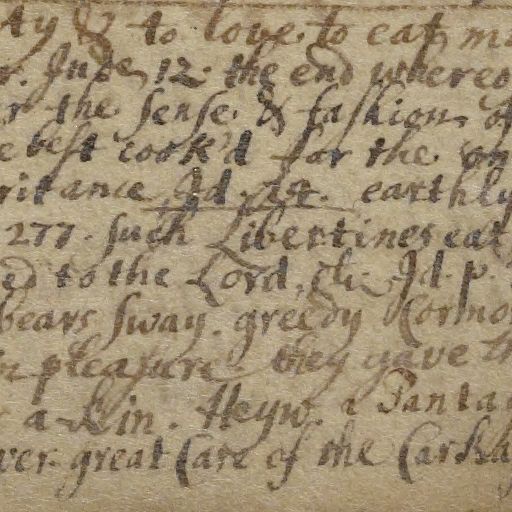 Ay & to love to eat m
r. Jude 12. the end whereo
r the sense & fashion of
e best cook'd for the on
ritance Id. 24. earthly
277. such Libertines eat
ed to the Lord, &c. Id. p.
bears sway. greedy Cormo
in pleasure they gave th
a Kin. Heyw. a Panta
ver. great Care of the Carka